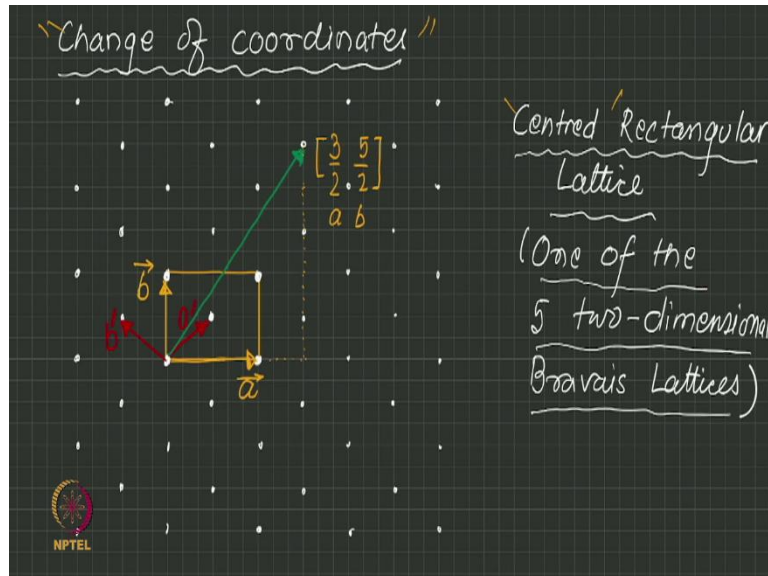 "Change of coordinates"
[3/2 5/2]
a b
b⃗
b'
a'
a⃗
'Centred Rectangular'
Lattice
(One of the
5 two-dimensional
Bravais Lattices)
NPTEL